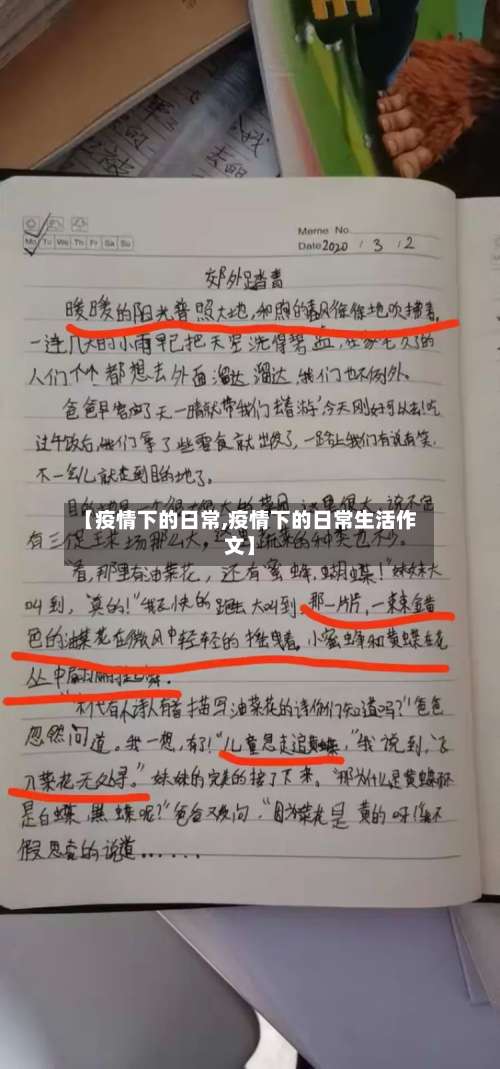 我
去
的
Mo Tu We Th Fr Sa Su
Memo No.
Date 2020 / 3 / 2
郊外踏青
暖暖的阳光普照大地,和煦的春风徐徐地吹拂着,
一连几天的小雨早已把天空洗得碧蓝,在家宅久了的
人们个个都想去外面溜达溜达,我们也不例外。
爸爸早答应了天一晴就带我们去春游,今天刚好可以去!吃
过午饭后,我们拿了些零食就出发了,一路上我们有说有笑,
不一会儿就走到目的地了。
【疫情下的日常,疫情下的日常生活作
文】
有三 足球场那么大,
看,那里有油菜花,还有蜜蜂,蝴蝶!"妹妹大
叫到,"真的!"我 快的 大叫到,那一片片,一束束金黄
色的油菜花在微风中轻轻的摇曳着。小蜜蜂和黄蝶在花
丛中
代有 诗人有首描写油菜花的诗你们知道吗?"爸爸
忽然问道。我一想,有了!"儿童急走追黄蝶,"我说到,"飞
入菜花无处寻。"妹妹的完美的接了下来。"那为什么是黄蝶不
是白蝶,黑蝶呢?"爸爸又发问,"因为菜花是黄的呀!"我不
假思索的说道……